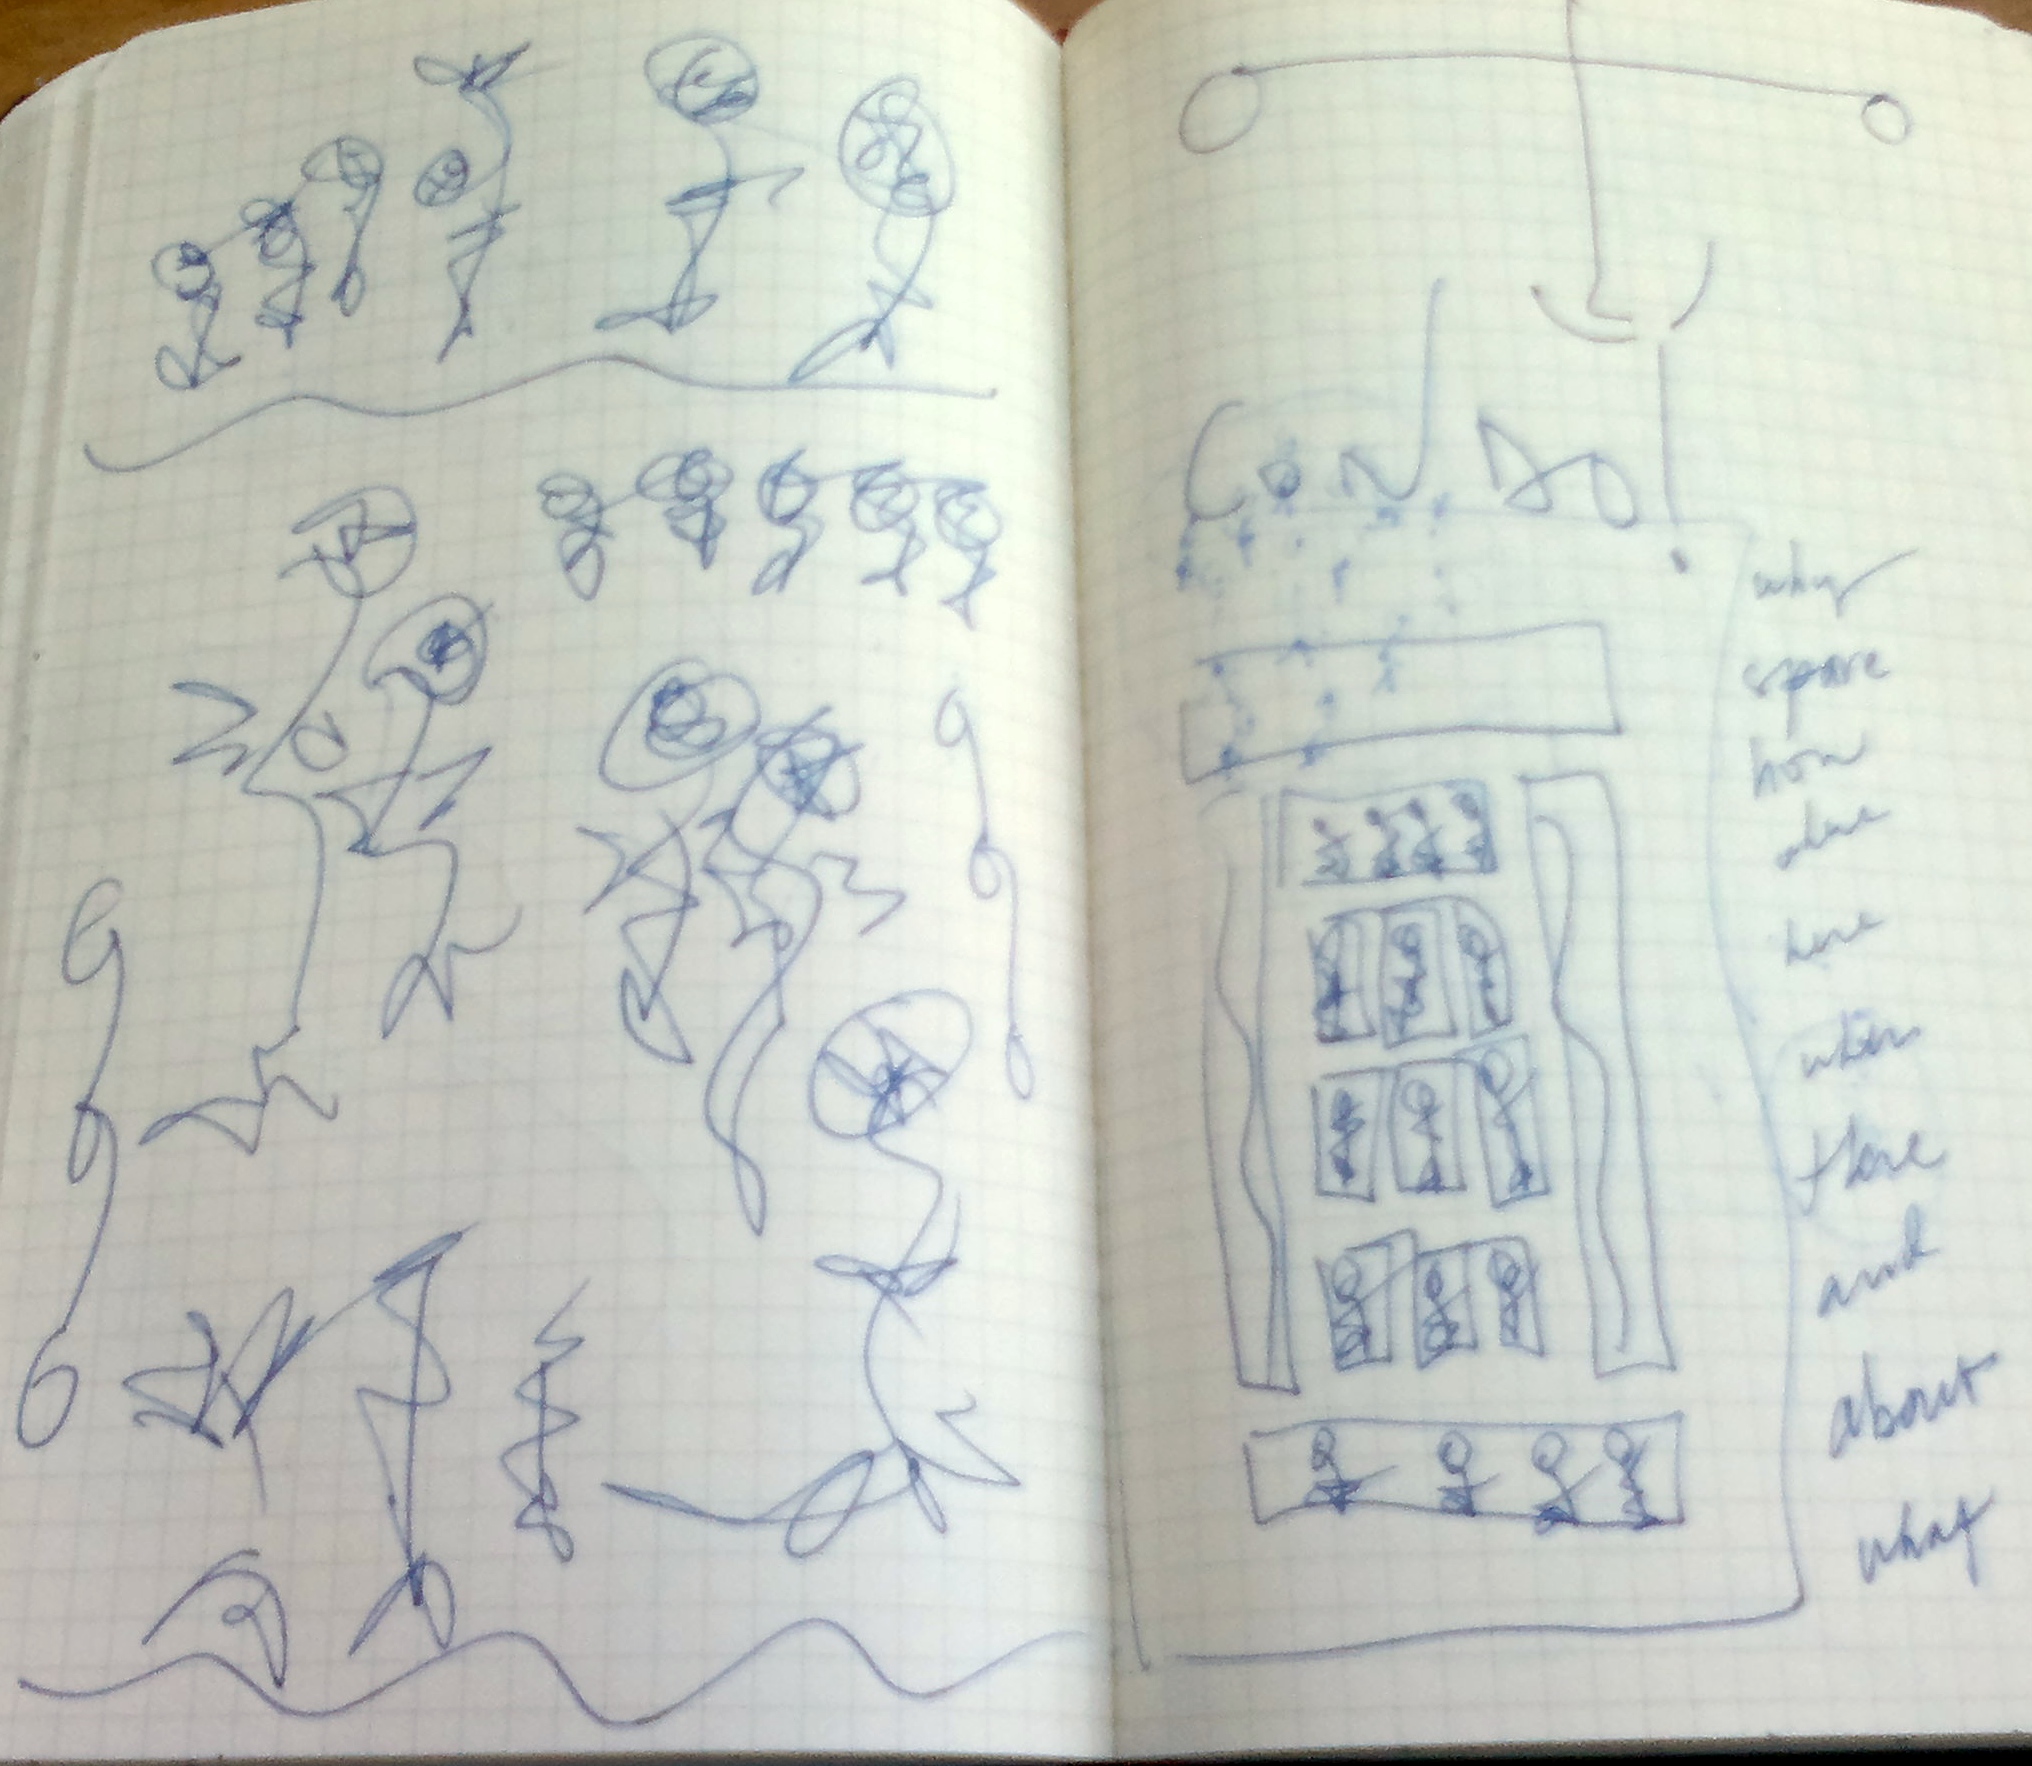 why
space
how
above
here
when
there
and
about
what